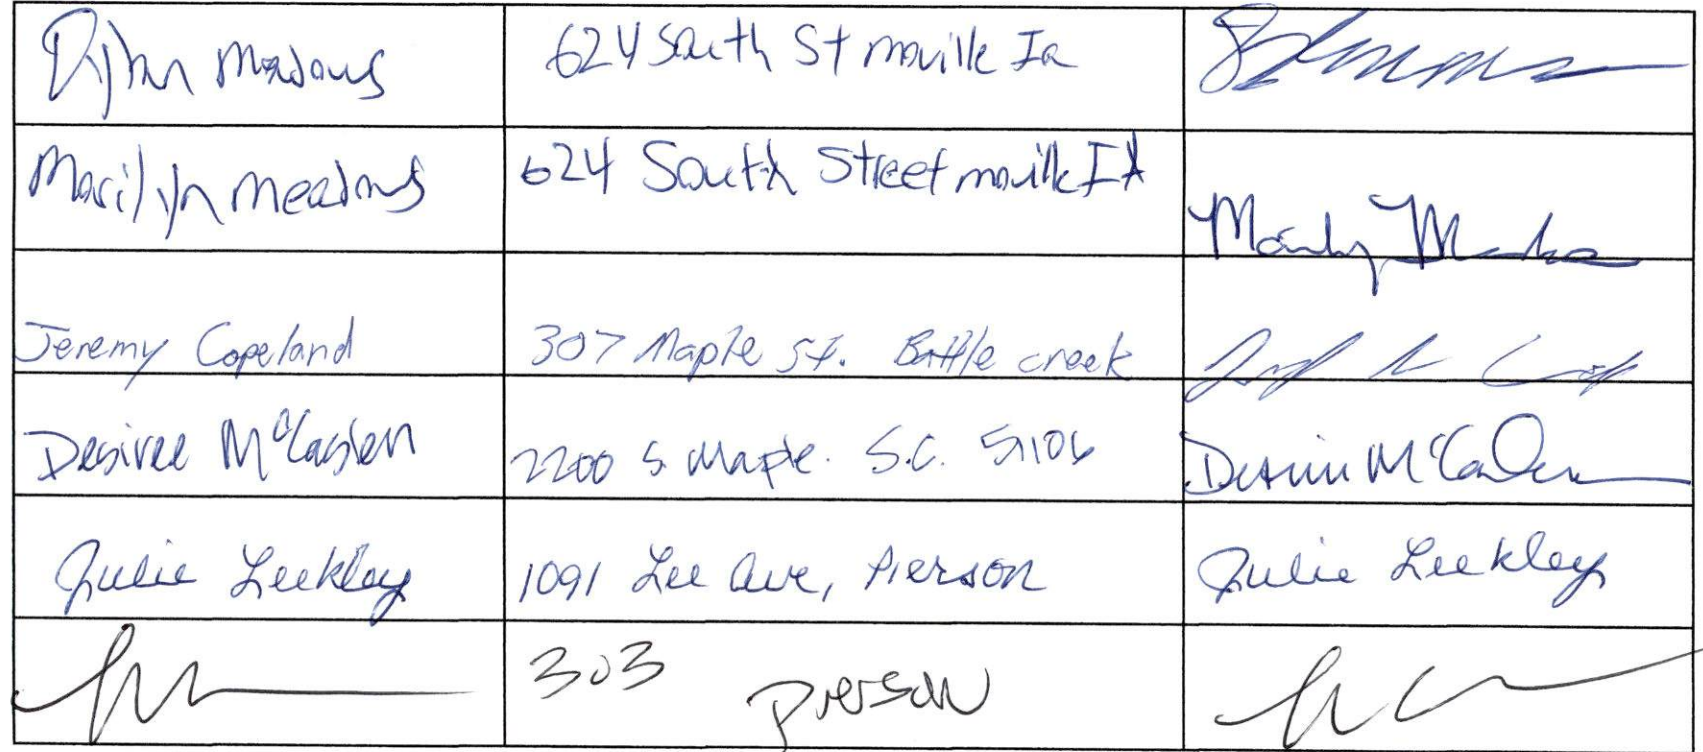 Dylan Meadows 624 South St Moville Ia
Marilyn Meadows 624 South Street Moville IA
Jeremy Copeland 307 Maple St. Battle creek
Desiree McCaslen 2200 S. Maple. S.C. 51106 Desiree McCaslen
Julie Leekley 1091 Lee Ave, Pierson Julie Leekley
303 Pierson